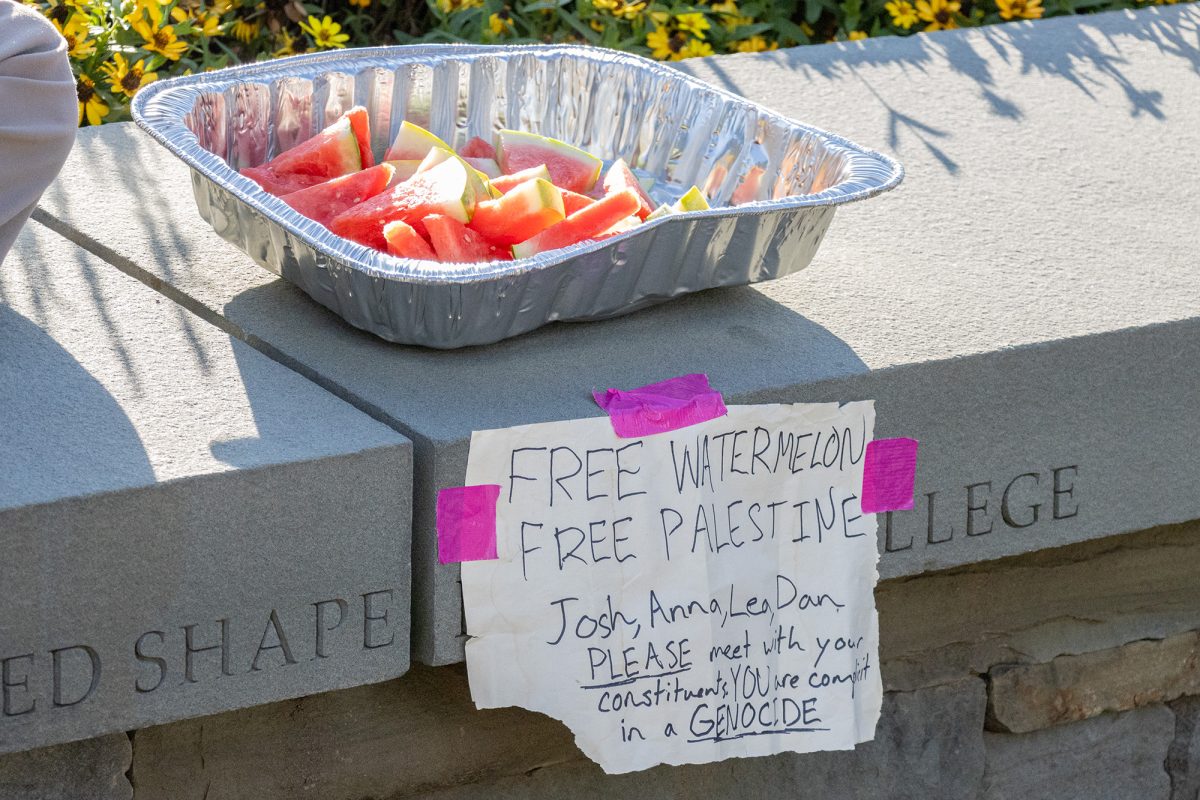 FREE WATERMELON
FREE PALESTINE
Josh, Anna, Lea, Dan
PLEASE meet with your
constituents, YOU are complicit
in a GENOCIDE
ED SHAPE
LLEGE